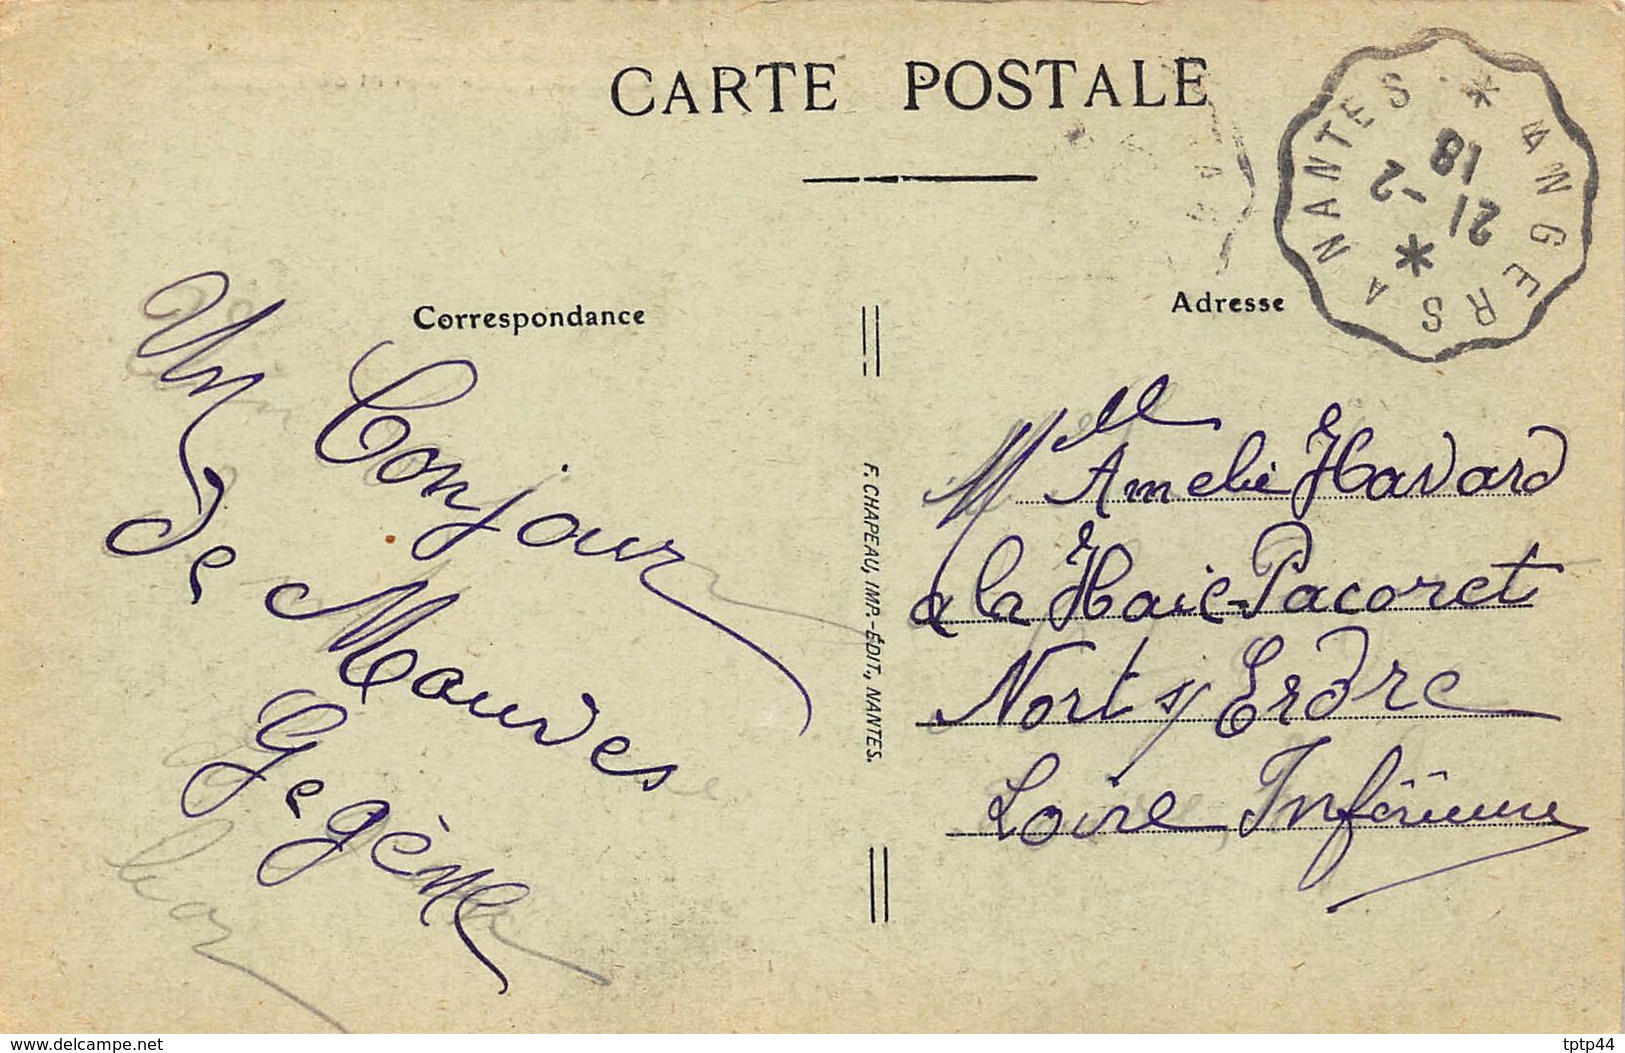 CARTE POSTALE
ANGERS A NANTES
18
21 -2
Correspondance
Adresse
Un
Bonjour
De Mauves
Gegène
F. CHAPEAU, IMP.-ÉDIT., NANTES.
Melle Amelie Havard
a la Haie-Pacoret
Nort s/ Erdre
Loire Inférieure
www.delcampe.net
tptp44